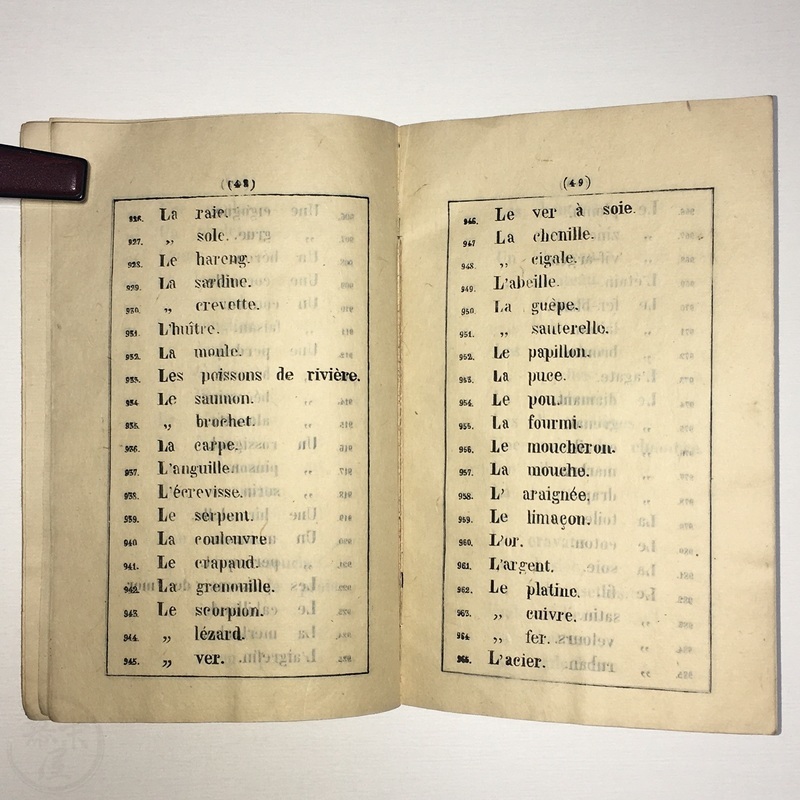 (48)
926. La raie.
927. „ sole.
928. Le hareng.
929. La sardine.
930. „ crevette.
931. L'huître.
932. La moule.
933. Les poissons de rivière.
934. Le saumon.
935. „ brochet.
936. La carpe.
937. L'anguille.
938. L'écrevisse.
939. Le serpent.
940. La couleuvre.
941. Le crapaud.
942. La grenouille.
943. Le scorpion.
944. „ lézard.
945. „ ver.
(49)
946. Le ver à soie.
947. La chenille.
948. „ cigale.
949. L'abeille.
950. La guèpe.
951. „ sauterelle.
952. Le papillon.
953. La puce.
954. Le pou.
955. La fourmi.
956. Le moucheron.
957. La mouche.
958. L' araignée.
959. Le limaçon.
960. L'or.
961. L'argent.
962. Le platine.
963. „ cuivre.
964. „ fer.
965. L'acier.